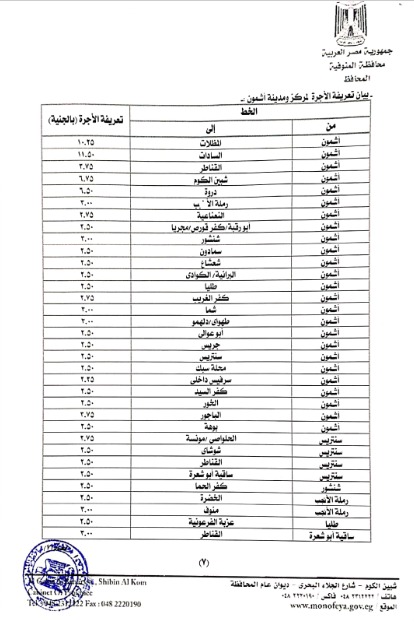 جمهورية مصر العربية
محافظة المنوفية
المحافظ
ـ بيان تعريفة الأجرة لمركز ومدينة أشمون :ـ
الخط تعريفة الأجرة (بالجنية)
من إلى
أشمون المظلات ١٠.٢٥
أشمون السادات ١١.٥٠
أشمون القناطر ٣.٧٥
أشمون شبين الكوم ٦.٧٥
أشمون دروة ٦.٥٠
أشمون رملة ٣.٠٠
أشمون النعناعية ٢.٧٥
أشمون أبو رقبة/كفر قورص/مجريا ٢.٥٠
أشمون شنشور ٣.٠٠
أشمون سمادون ٢.٥٠
أشمون شعشاع ٢.٥٠
أشمون البرانية/ الكوادى ٢.٥٠
أشمون طليا ٢.٥٠
أشمون كفر الغريب ٢.٧٥
أشمون شما ٣.٠٠
أشمون طهواى/دلهمو ٣.٠٠
أشمون ابو عوالى ٢.٥٠
أشمون جريس ٢.٥٠
أشمون سنتريس ٢.٥٠
أشمون محلة سبك ٢.٥٠
أشمون سرفيس داخلى ٢.٢٥
أشمون كفر السيد ٢.٥٠
أشمون الخور ٢.٥٠
أشمون الباجور ٣.٧٥
أشمون بوهة ٢.٥٠
سنتريس الحلواصى /مونسة ٢.٧٥
سنتريس شوشاى ٢.٥٠
سنتريس القناطر ٢.٥٠
سنتريس ساقية أبو شعرة ٢.٥٠
شنشور كفر الحما ٢.٥٠
رملة الأنجب الخضرة ٢.٥٠
رملة الأنجب منوف ٣.٠٠
طليا عزبة الفرعونية ٢.٥٠
ساقية أبو شعرة القناطر ٣.٠٠
(٧)
شبين الكوم - شارع الجلاء البحرى - ديوان عام المحافظة
هاتف / فاكس / ٠٤٨ ٢٢٢٠١٩٠
الموقع www.monofeya.gov.eg
Shibin Al Kom
Fax : 048 2220190